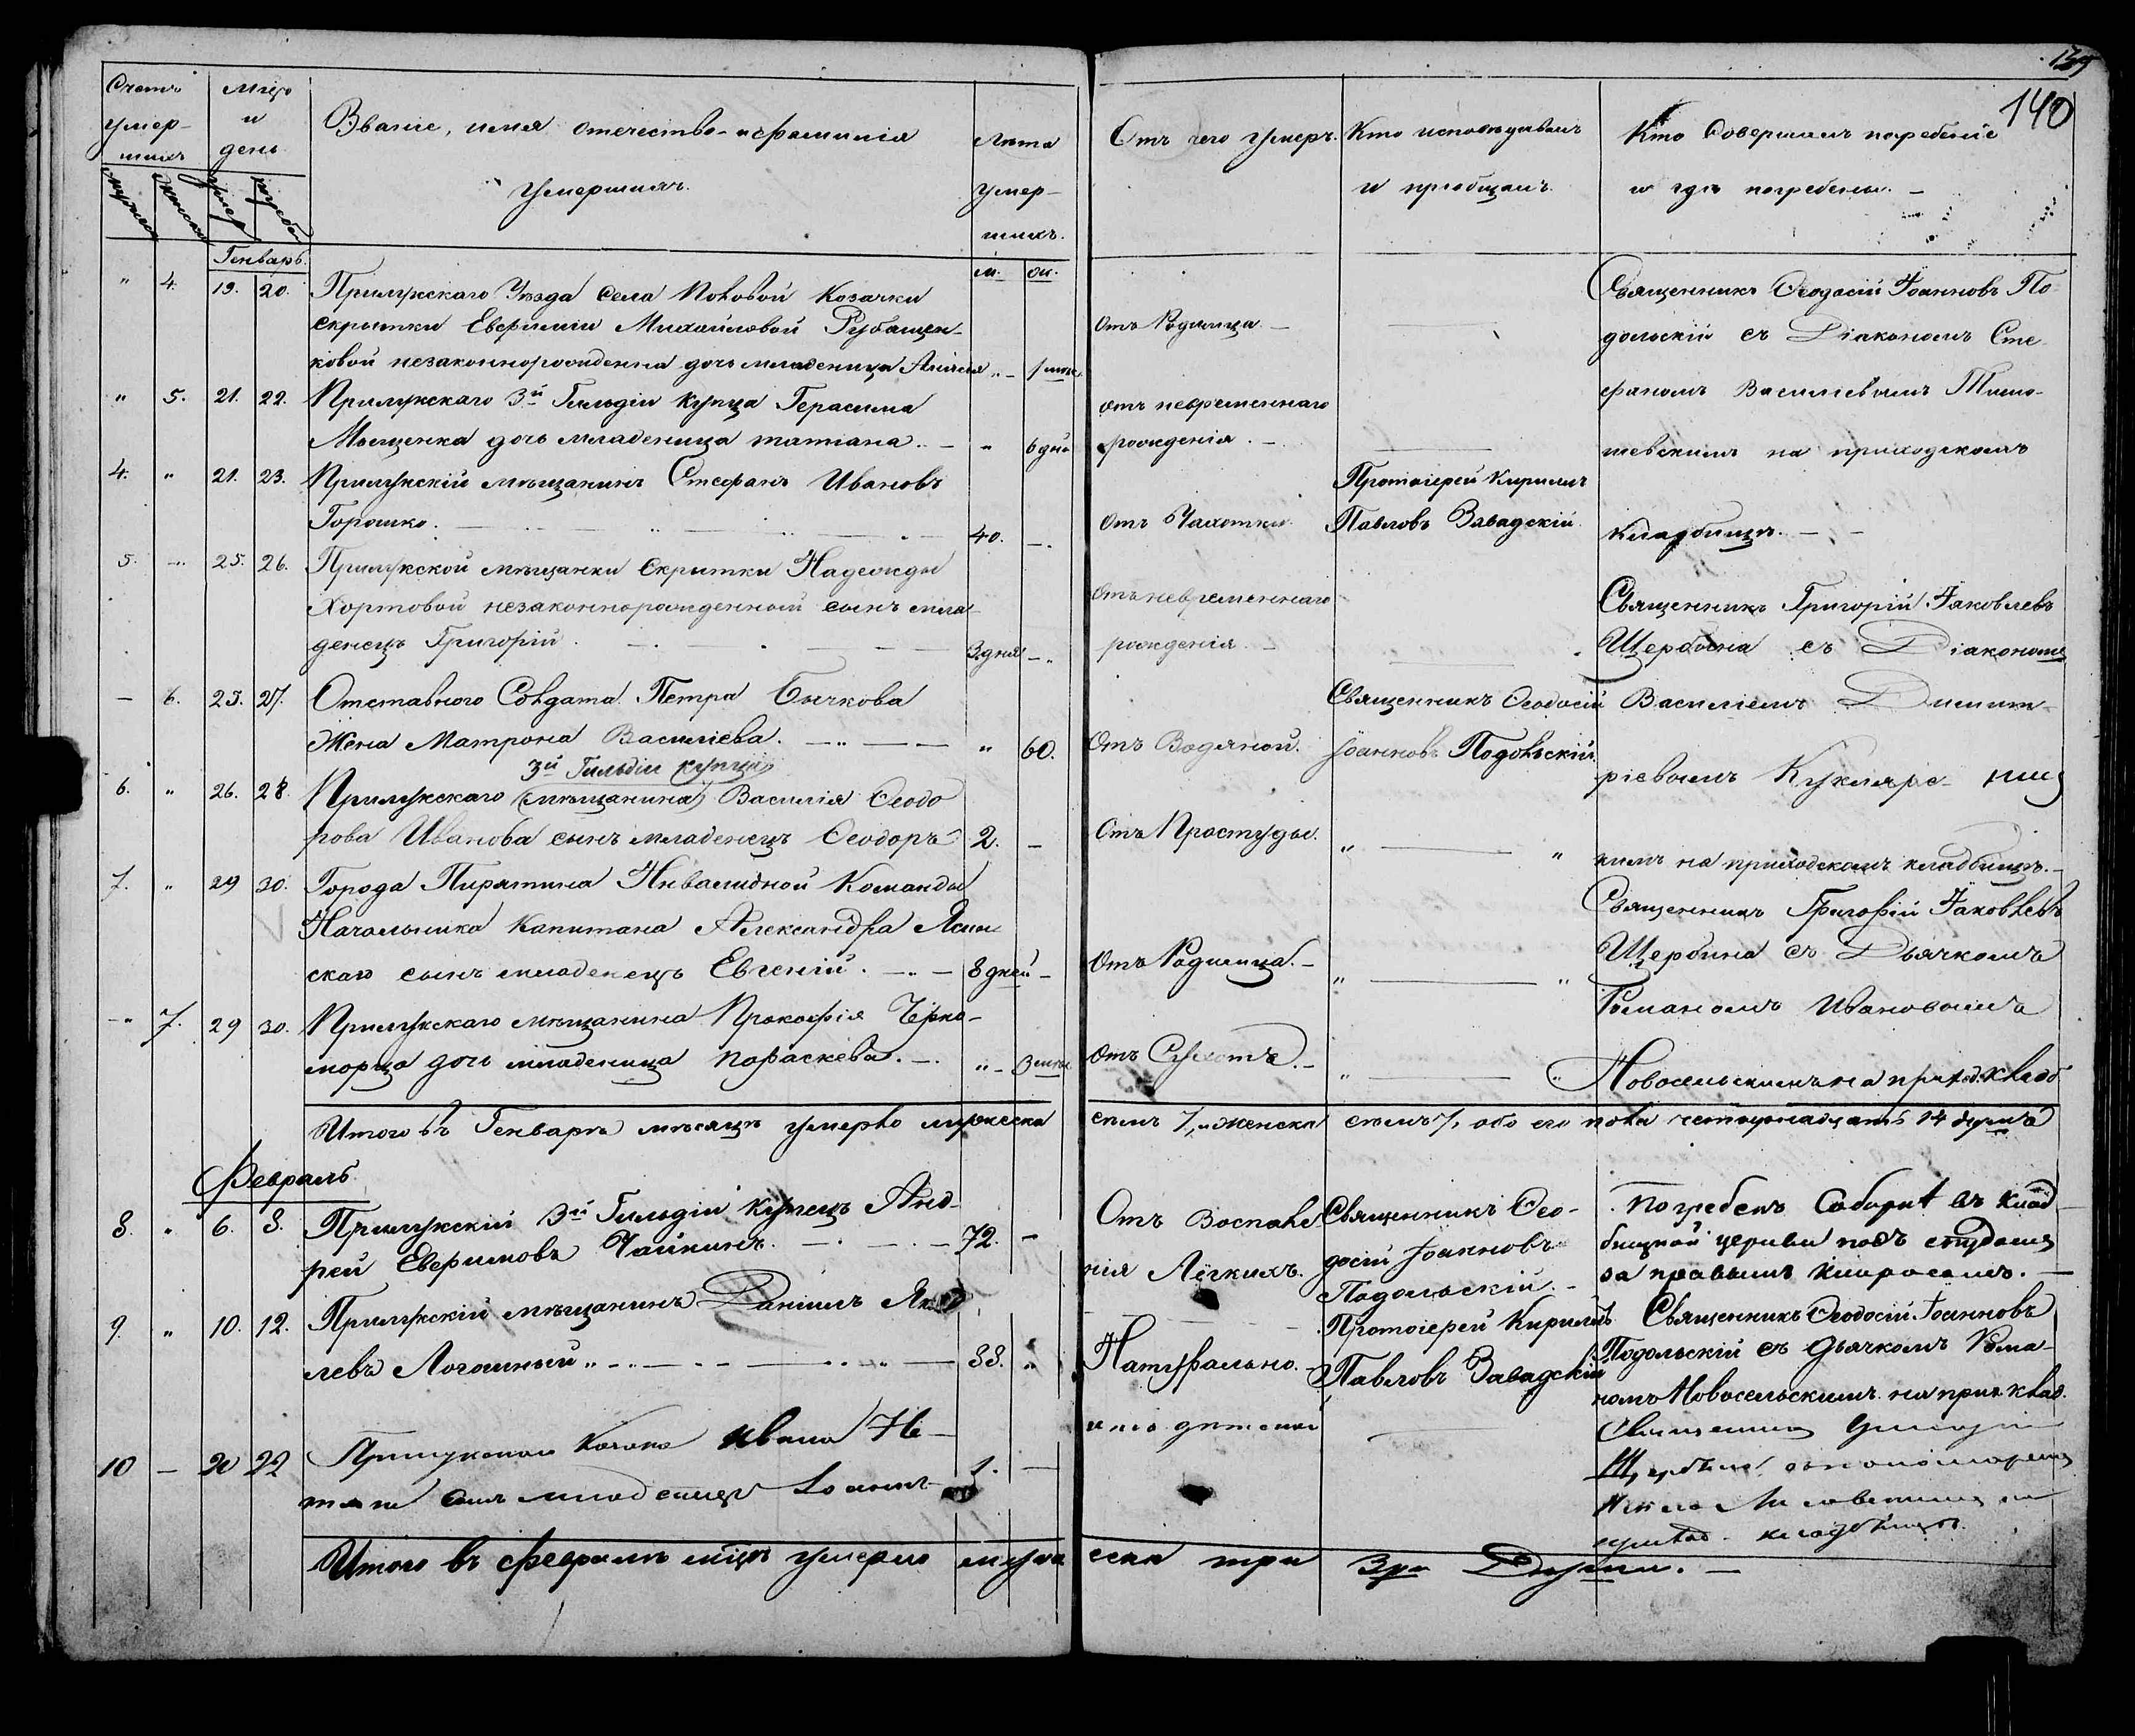 139
140
Счетъ умер- шихъ
Мѣсц. и день
Званіе, имя отечество и фамилія
умершихъ.
Лѣта умер- шихъ.
Отъ чего умеръ.
Кто исповѣдывалъ
и пріобщалъ.
Кто Совершалъ погребеніе
и гдѣ погребены.
мужеска женска умер погреб
м. ж.
Генварь.
" 4. 19. 20. Прилукскаго Уѣзда Села Половой Козачки
скрытки Евфиміи Михайловой Рубащен-
ковой незаконнорожденна дочь младеница
Отъ Родимца.
Священникъ Ѳеодосій Іоанновъ По-
дольскій съ Діакономъ Сте-
фаномъ Василіевымъ Тимо-
шевскимъ на приходскомъ
кладбищѣ.
" 5. 21. 22. Прилукскаго 3й Гильдіи Купца Герасима
Мыщенка дочь младеница татіана. " 6 дней
отъ невременнаго
рожденія.
4. " 21. 23. Прилукскій мѣщанинъ Стефанъ Ивановъ
Горошко. 40.
Отъ Чахотки.
Протоіерей Кириллъ
Павловъ Завадскій
5. " 25. 26. Прилукской мѣщанки Скритки Надежды
Хортовой незаконнорожденной сынъ мла-
денецъ Григорій. 3 дня
Отъ невременнаго
рожденія.
Священникъ Григорій Іаковлевъ
Щербина съ Діакономъ
Василіемъ Димит-
ріевымъ
кимъ на приходскомъ кладбищѣ.
— 6. 25. 27. Отставного Солдата Петра Бычкова
Жена Матрона Василіева. " 60.
Отъ Водяной.
Священникъ Ѳеодосій
Іоанновъ Подольскій.
3й Гильдіи купца
6. " 26. 28. Прилукскаго (мѣщанина) Василія Ѳеодо
рова Иванова сынъ младенецъ Ѳеодоръ 2. –
Отъ Простуды.
7. " 29 30. Города Пирятина Инвалидной Команды
Начальника Капитана Александра Ясин
скаго сынъ младенецъ Евгеній. 8 дней
Отъ Родимца.
Священникъ Григорій Іаковлевъ
Щербина съ Дьячкомъ
Романомъ Ивановымъ
Новосельскимъ на приход. клад
" 7. 29 30. Прилукскаго мѣщанина Прокофія Черно-
морца дочь младеница параскева.
Отъ Сухотъ.
Итого въ Генварѣ мѣсяцѣ умерло мужеска семъ 7, и женска семъ 7, обо его пола четырнадцать 14 душъ
Февраль
8. " 6. 8. Прилукскій 3й Гильдіи Купецъ Анд-
рей Евфимовъ Чайкинъ. 72. –
Отъ Воспале
нія Лёгкихъ.
Священникъ Ѳео-
досій Іоанновъ
Подольскій.
Погребенъ Соборнѣ въ клад
бищной церкви подъ
за правымъ клиросомъ.
9. " 10. 12. Прилукскій мѣщанинъ Даніилъ Яко
левъ 88. "
Натурально.
Протоіерей Кириллъ
Павловъ Завадскій
Священникъ Ѳеодосій Іоанновъ
Подольскій съ Дьячкомъ Рома-
номъ Новосельскимъ на прих. клад.
10 — 20 22 Прилукскаго Козака Ивана Не-
сынъ младенецъ Іоаннъ 1. —
Священникъ Григорій
Щербина съ пономаремъ
кладбищѣ.
Итого въ Февралѣ мѣцѣ умерло мужа ескa три 3ри Души.